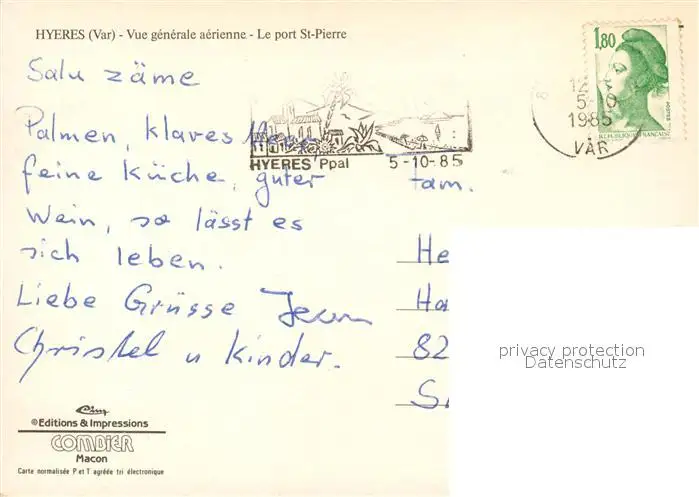 HYERES (Var) - Vue générale aérienne - Le port St-Pierre
1,80
Salu zäme
12
5-10
1985
VAR
REPUBLIQUE FRANÇAISE
POSTES
Palmen, klares
HYERES Ppal 5-10-85
feine Küche, guter
Fam.
Wein, so lässt es
sich leben.
He
Liebe Grüsse Jean
Ha
Christel u Kinder.
82
privacy protection
Datenschutz
©Editions & Impressions
COMBIER
Macon
Carte normalisée P et T agréée tri électronique